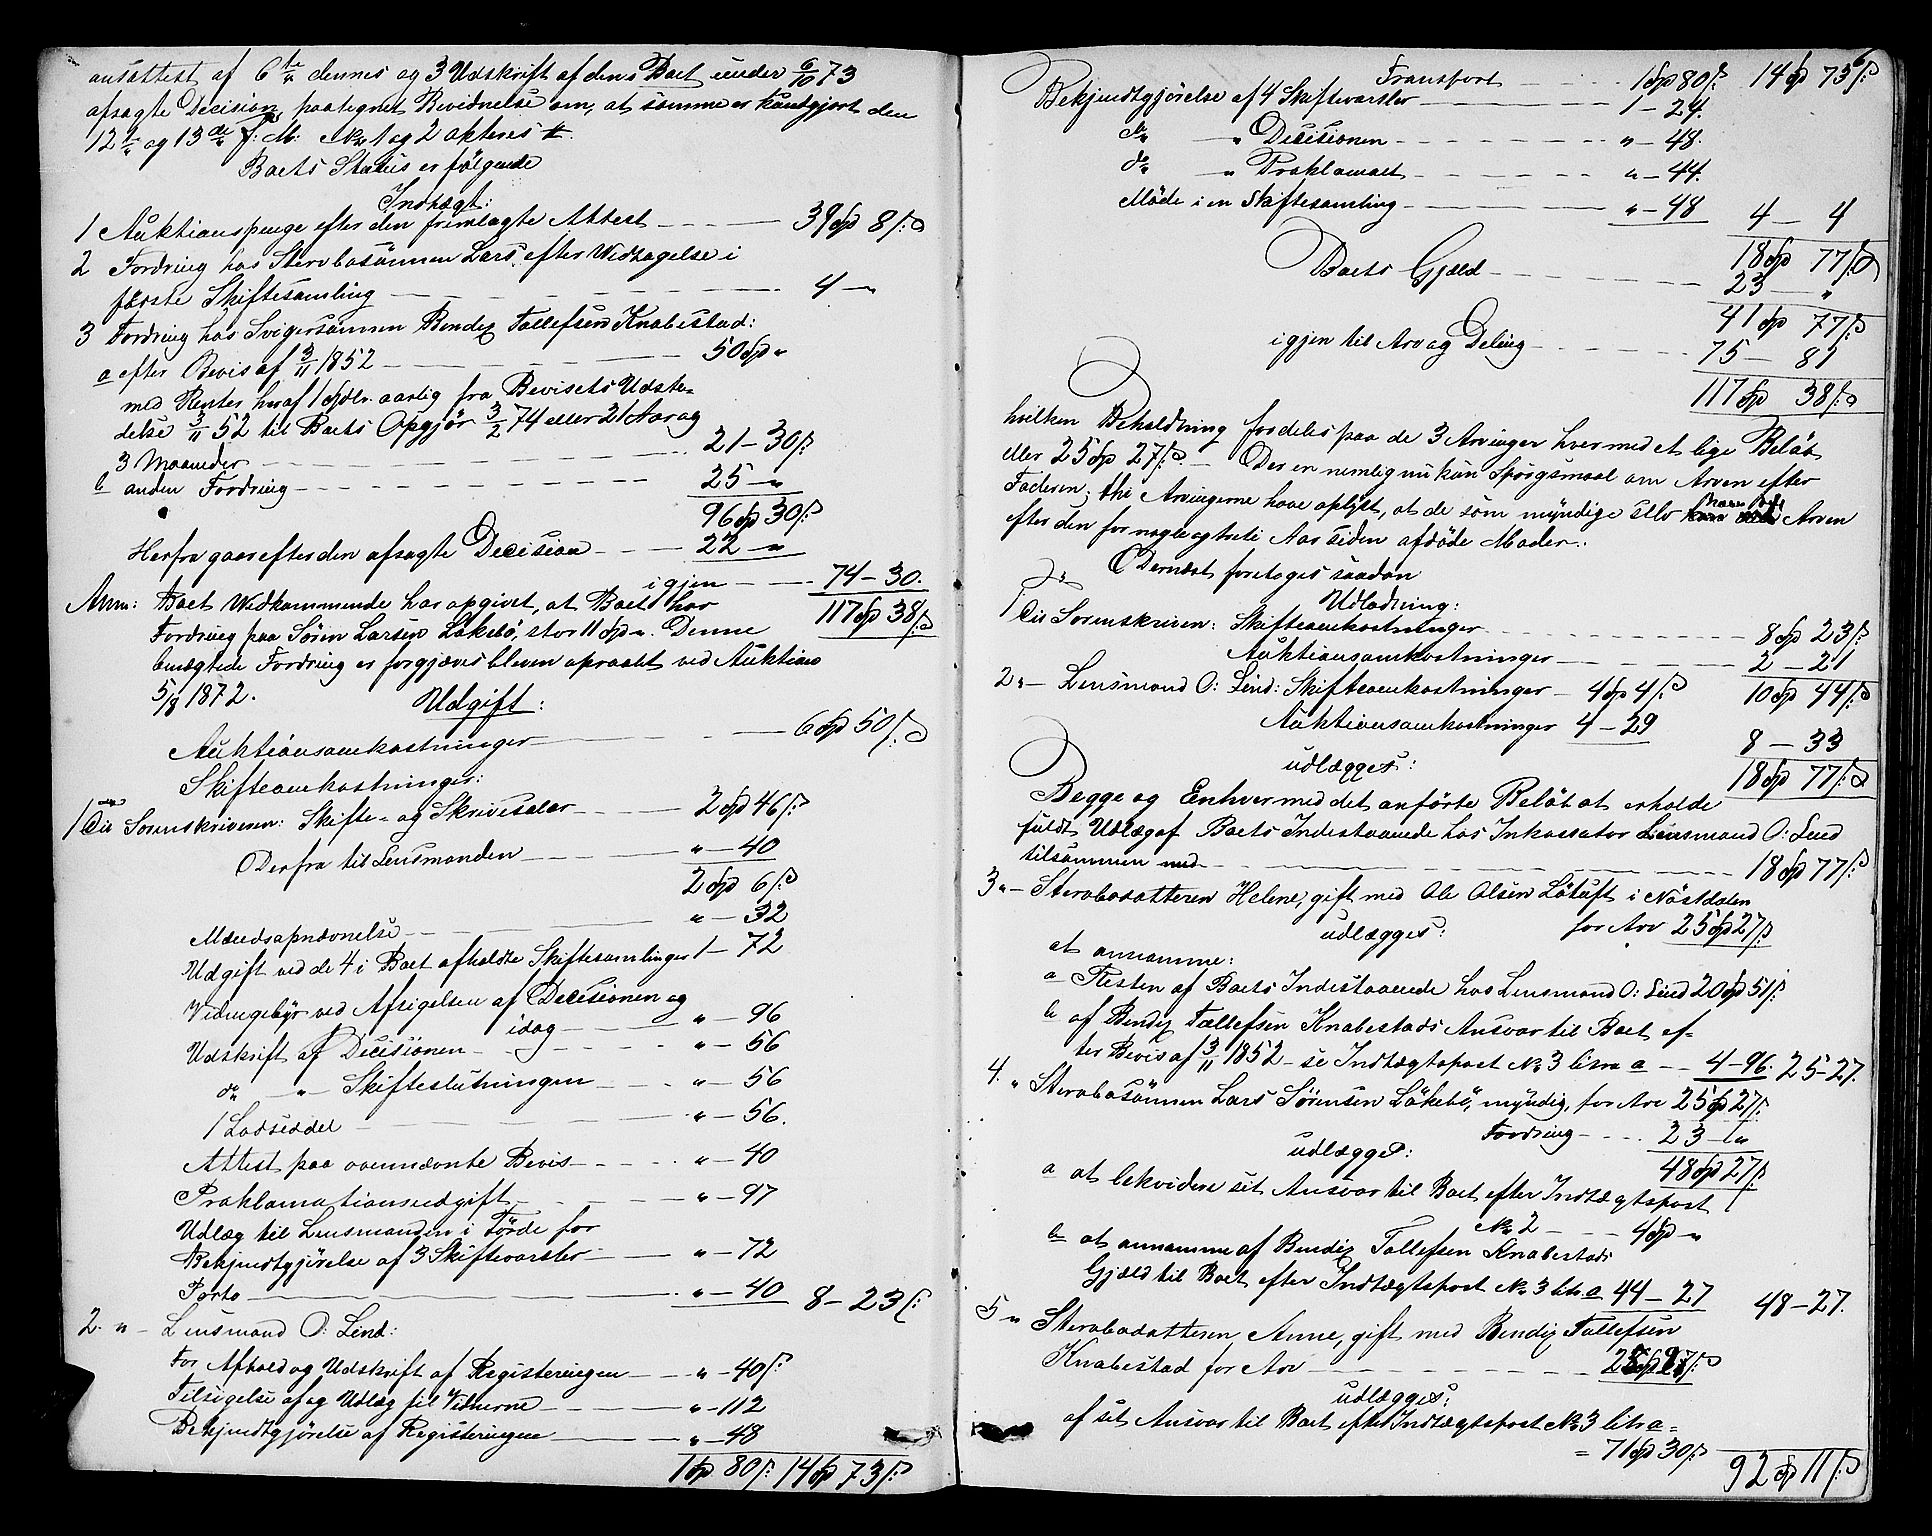 ansattest af 6te dennes og 3 Udskrift af dens Boet under 6/10 73
afsagte Decision, paategnet Bevidnelse om, at samme er kundgjort den
12te og 13de f: M: No 1 og 2 akteres
Boets Status er følgende
Indtægt:
1 Auktionspenge efter den fremlagte Attest 39 Spd 8 ß
2 Fordring hos Sterbosønnen Lars efter Vedtagelse i
første Skiftesamling 4 - "
3 Fordring hos Svigersønnen Bendix Tollefsen Knabestad:
a efter Bevis af 3/11 1852 50 Spd "
med Renter heraf 1 Spdlr. aarlig fra Bevisets Udste-
delse 3/11 52 til Boets Opgjør 3/2 74 eller 21 Aar og
3 Maaneder 21 - 30 ß
b anden Fordring 25 - "
96 Spd 30 ß
Herfra gaar efter den afsagte Decision 22 - "
igjen 74 - 30.
Anm: Boet Vedkommende har opgivet, at Boet har 117 Spd 38 ß
Fordring paa Søren Larsen Løkebø, stor 11 Spd ". Denne
benægtede Fordring er forgjæves bleven opraabt ved Auktion
5/8 1872.
Udgift:
Auktionsomkostninger 6 Spd 50 ß
Skifteomkostninger:
1 Til Sorenskriveren: Skifte- og Skrivesalær 2 Spd 46 ß
Derfra til Lensmanden " - 40
2 Spd 6 ß
Mændsopnævnelse " - 32
Udgift ved de 4 i Boet afholdte Skiftesamlinger 1 - 72
Vidnegebyr ved Afsigelsen af Decisionen og
idag " - 96
Udskrift af Decisionen " - 56
do " Skifteslutningen " - 56
1 Lodseddel " - 56.
Attest paa ovennævnte Bevis " - 40
Proklamationsudgift " - 97
Udlæg til Lensmanden i Førde for
Bekjendtgjørelse af 3 Skiftevarsler " - 72
Porto " - 40 8 - 23 ß
2. " - Lensmand O: Lind:
For Afhold og Udskrift af Registeringen " - 40 ß
Tilsigelse af og Udlæg til Vidnerne " - 112
Bekjendtgjørelse af Registeringen " - 48
1 Spd 80 ß 14 Spd 73 ß
Transport 1 Spd 80 ß 14 Spd 73 ß
Bekjendtgjørelse af 4 Skiftevarsler 1 - 24.
do " Decisionen " - 48.
do " Proklamaet " - 44.
Møde i en Skiftesamling " - 48 4 - 4
18 Spd 77 ß
Boets Gjæld 23 "
41 Spd 77 ß
igjen til Arv og Deling 75 - 81
117 Spd 38 ß
hvilken Beholdning fordeles paa de 3 Arvinger hver med et lige Beløb
eller 25 Spd 27 ß. - Der er nemlig nu kun Spørgsmaal om Arven efter
Faderen; thi Arvingerne have oplyst, at de som myndige selv have Arven
efter den for nogle og treti Aar siden afdøde Moder.
Dernæst foretoges saadan
Udlodning:
1 Til Sorenskriveren: Skifteomkostninger 8 Spd 23 ß
Auktionsomkostninger 2 - 21
2 " - Lensmand O: Lind: Skifteomkostninger 4 Spd 4 ß 10 Spd 44 ß
Auktionsomkostninger 4 - 29
8 - 33
udlægges: 18 Spd 77 ß
Begge og Enhver med det anførte Beløb at erholde
fuldt Udlæg af Boets Indestaaende hos Inkassator Lensmand O: Lind
tilsammen med 18 Spd 77 ß
3 " - Sterbodatteren Helene, gift med Ole Olsen Løtuft i Nøstdalen
udlægges: for Arv 25 Spd 27 ß
at annamme:
a Resten af Boets Indestaaende hos Lensmand O: Lind 20 Spd 51 ß
b af Bendix Tollefsen Knabestads Ansvar til Boet ef-
ter Bevis af 3/11 1852 - se Indtægtspost No 3 litra a 4 - 96. 25 - 27.
4. " Sterbosønnen Lars Sørensen Løkebø, myndig, for Arv 25 Spd 27 ß
Fordring 23 - "
udlægges: 48 Spd 27 ß
a at likvidere sit Ansvar til Boet efter Indtægtspost
No 2 4 Spd "
b at annamme af Bendix Tollefsen Knabestads
Gjæld til Boet efter Indtægtspost No 3 litr. a 44 - 27 48 - 27.
5 " Sterbodatteren Anne, gift med Bendix Tollefsen
Knabestad for Arv 25 Spd 27 ß
udlægges:
af sit Ansvar til Boet efter Indtægtspost No 3 litr a =
= 71 Spd 30 ß
92 Spd 11 ß